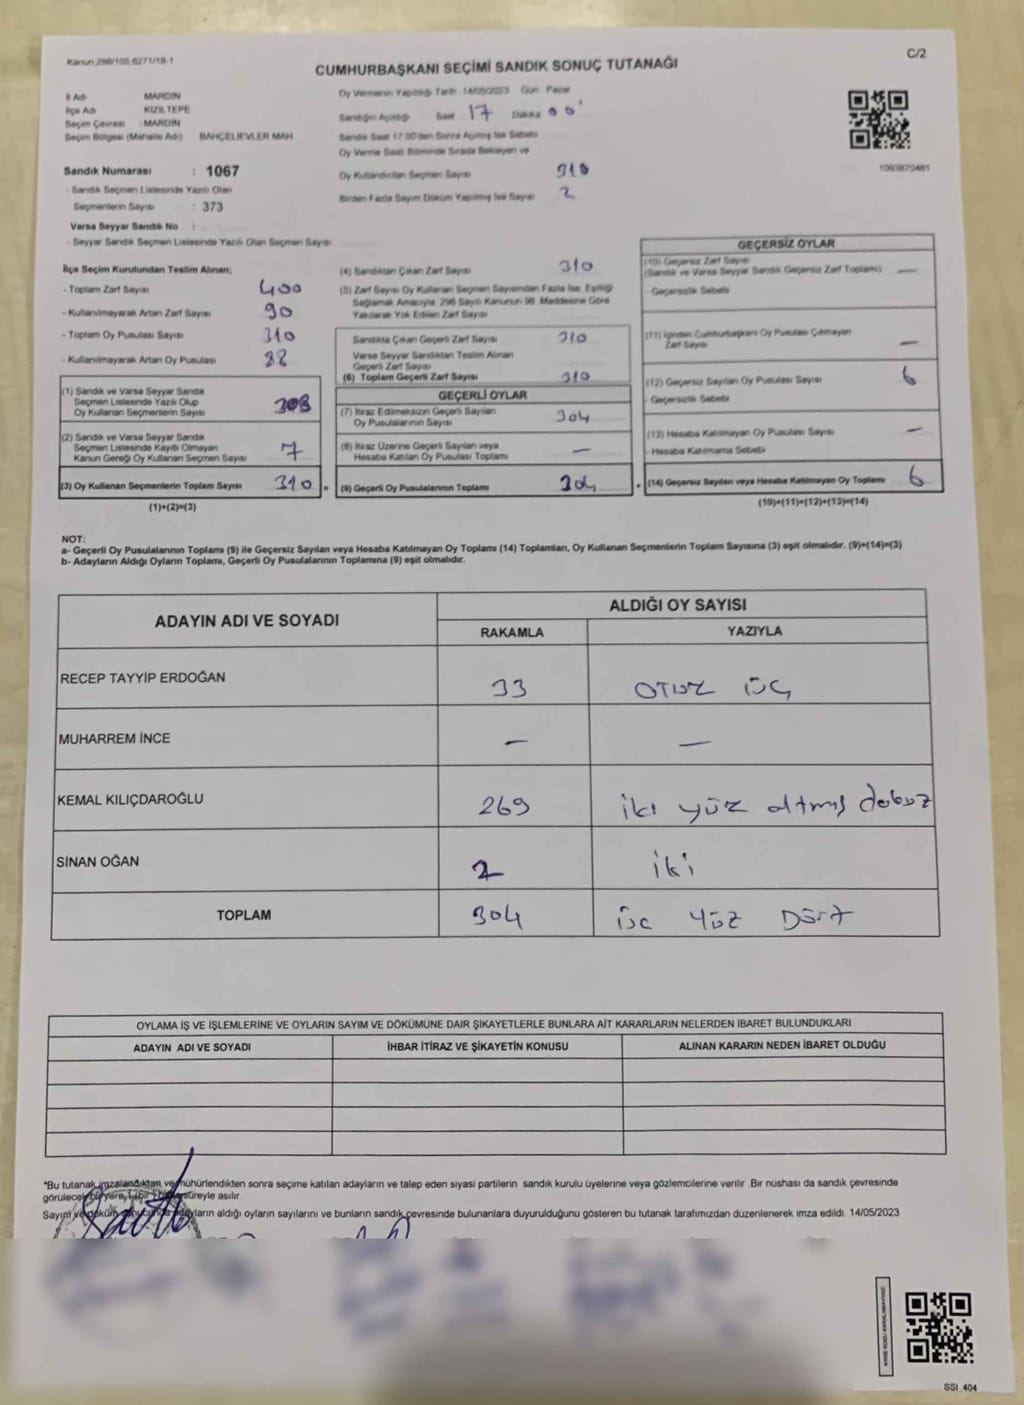 Kanun 298/105,6271/18-1
C/2
CUMHURBAŞKANI SEÇİMİ SANDIK SONUÇ TUTANAĞI
İl Adı MARDİN
İlçe Adı KIZILTEPE
Seçim Çevresi : MARDİN
Seçim Bölgesi (Mahalle Adı) BAHÇELİEVLER MAH
Sandık Numarası : 1067
- Sandık Seçmen Listesinde Yazılı Olan
Seçmenlerin Sayısı : 373
Varsa Seyyar Sandık No :
- Seyyar Sandık Seçmen Listesinde Yazılı Olan Seçmen Sayısı
Oy Vermenin Yapıldığı Tarih 14/05/2023 Gün: Pazar
Sandığın Açıldığı Saat 17 Dakika 00
Sandık Saat 17.00'den Sonra Açılmış İse Sebebi
Oy Verme Saati Bitiminde Sırada Bekleyen ve
Oy Kullandırılan Seçmen Sayısı 310
Birden Fazla Sayım Döküm Yapılmış İse Sayısı 2
1093870481
İlçe Seçim Kurulundan Teslim Alınan;
- Toplam Zarf Sayısı 400
- Kullanılmayarak Artan Zarf Sayısı 90
- Toplam Oy Pusulası Sayısı 310
- Kullanılmayarak Artan Oy Pusulası 88
(1) Sandık ve Varsa Seyyar Sandık
Seçmen Listesinde Yazılı Olup
Oy Kullanan Seçmenlerin Sayısı 303
(2) Sandık ve Varsa Seyyar Sandık
Seçmen Listesinde Kayıtlı Olmayan
Kanun Gereği Oy Kullanan Seçmen Sayısı 7
(3) Oy Kullanan Seçmenlerin Toplam Sayısı 310 =
(1)+(2)=(3)
(4) Sandıktan Çıkan Zarf Sayısı 310
(5) Zarf Sayısı Oy Kullanan Seçmen Sayısından Fazla İse, Eşitliği
Sağlamak Amacıyla, 298 Sayılı Kanunun 98. Maddesine Göre
Yakılarak Yok Edilen Zarf Sayısı
Sandıkta Çıkan Geçerli Zarf Sayısı 310
Varsa Seyyar Sandıktan Teslim Alınan
Geçerli Zarf Sayısı
(6) Toplam Geçerli Zarf Sayısı 310
GEÇERLİ OYLAR
(7) İtiraz Edilmeksizin Geçerli Sayılan
Oy Pusulalarının Sayısı 304
(8) İtiraz Üzerine Geçerli Sayılan veya
Hesaba Katılan Oy Pusulası Toplamı —
(9) Geçerli Oy Pusulalarının Toplamı 304 +
GEÇERSİZ OYLAR
(10) Geçersiz Zarf Sayısı
(Sandık ve Varsa Seyyar Sandık Geçersiz Zarf Toplamı) —
- Geçersizlik Sebebi
(11) İçinden Cumhurbaşkanı Oy Pusulası Çıkmayan
Zarf Sayısı —
(12) Geçersiz Sayılan Oy Pusulası Sayısı 6
- Geçersizlik Sebebi
(13) Hesaba Katılmayan Oy Pusulası Sayısı —
- Hesaba Katılmama Sebebi
(14) Geçersiz Sayılan veya Hesaba Katılmayan Oy Toplamı 6
(10)+(11)+(12)+(13)=(14)
NOT:
a- Geçerli Oy Pusulalarının Toplamı (9) ile Geçersiz Sayılan veya Hesaba Katılmayan Oy Toplamı (14) Toplamları, Oy Kullanan Seçmenlerin Toplam Sayısına (3) eşit olmalıdır. (9)+(14)=(3)
b- Adayların Aldığı Oyların Toplamı, Geçerli Oy Pusulalarının Toplamına (9) eşit olmalıdır.
ADAYIN ADI VE SOYADI
ALDIĞI OY SAYISI
RAKAMLA YAZIYLA
RECEP TAYYİP ERDOĞAN 33 OTUZ ÜÇ
MUHARREM İNCE — —
KEMAL KILIÇDAROĞLU 269 iki yüz altmış dokuz
SİNAN OĞAN 2 iki
TOPLAM 304 üç Yüz Dört
OYLAMA İŞ VE İŞLEMLERİNE VE OYLARIN SAYIM VE DÖKÜMÜNE DAİR ŞİKAYETLERLE BUNLARA AİT KARARLARIN NELERDEN İBARET BULUNDUKLARI
ADAYIN ADI VE SOYADI İHBAR İTİRAZ VE ŞİKAYETİN KONUSU ALINAN KARARIN NEDEN İBARET OLDUĞU
*Bu tutanak imzalandıktan ve mühürlendikten sonra seçime katılan adayların ve talep eden siyasi partilerin sandık kurulu üyelerine veya gözlemcilerine verilir. Bir nüshası da sandık çevresinde
görülecek bir yere, süreyle asılır.
Sayım ve adayların aldığı oyların sayılarını ve bunların sandık çevresinde bulunanlara duyurulduğunu gösteren bu tutanak tarafımızdan düzenlenerek imza edildi. 14/05/2023
SSI_404